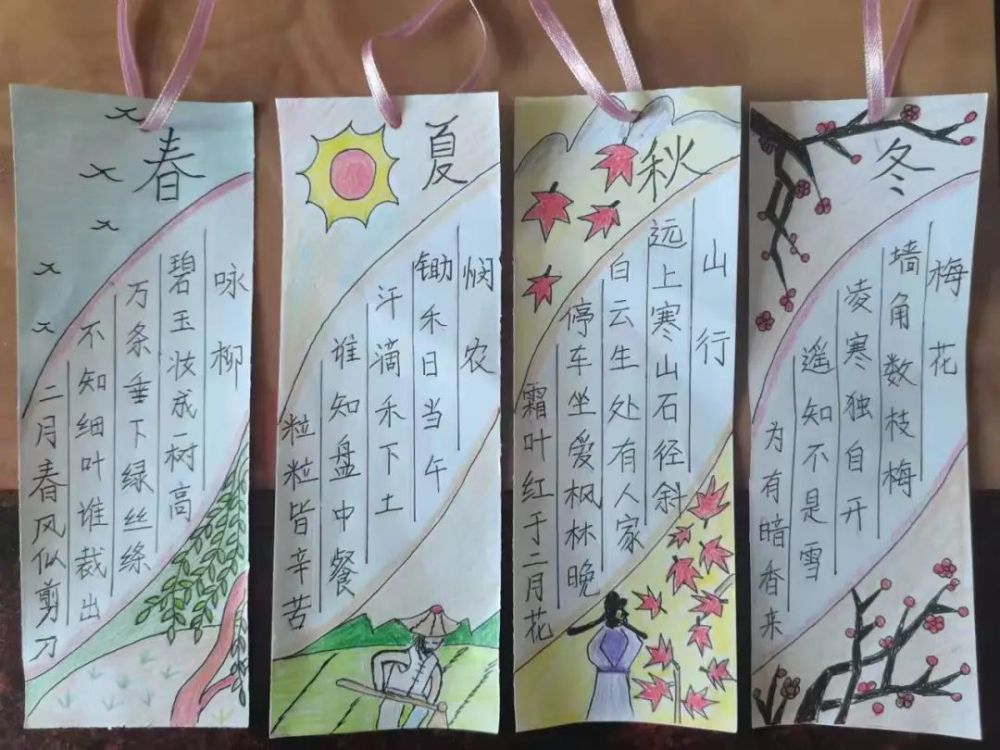 春
咏柳
碧玉妆成一树高
万条垂下绿丝绦
不知细叶谁裁出
二月春风似剪刀
夏
悯农
锄禾日当午
汗滴禾下土
谁知盘中餐
粒粒皆辛苦
秋
山行
远上寒山石径斜
白云生处有人家
停车坐爱枫林晚
霜叶红于二月花
冬
梅花
墙角数枝梅
凌寒独自开
遥知不是雪
为有暗香来